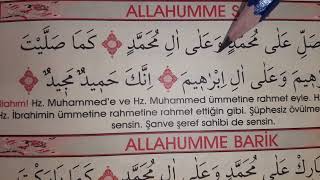 ALLAHUMME S
صَلِّ عَلَى مُحَمَّدٍ وَعَلَى اٰلِ مُحَمَّدٍ كَمَا صَلَّيْتَ
اِبْرٰهِيمَ وَعَلَى اٰلِ اِبْرٰهِيمَ اِنَّكَ حَمِيدٌ مَجِيدٌ
llahım! Hz. Muhammed'e ve Hz. Muhammed ümmetine rahmet eyle. H
Hz. İbrahimin ümmetine rahmetine rahmet ettiğin gibi. Şüphesiz övülme
sensin. Şanve şeref sahibi de sensin.
ALLAHUMME BARİK
عَلَى مُحَمَّدٍ وَعَلَى اٰلِ مُحَمَّدٍ كَمَا بَارَكْتَ